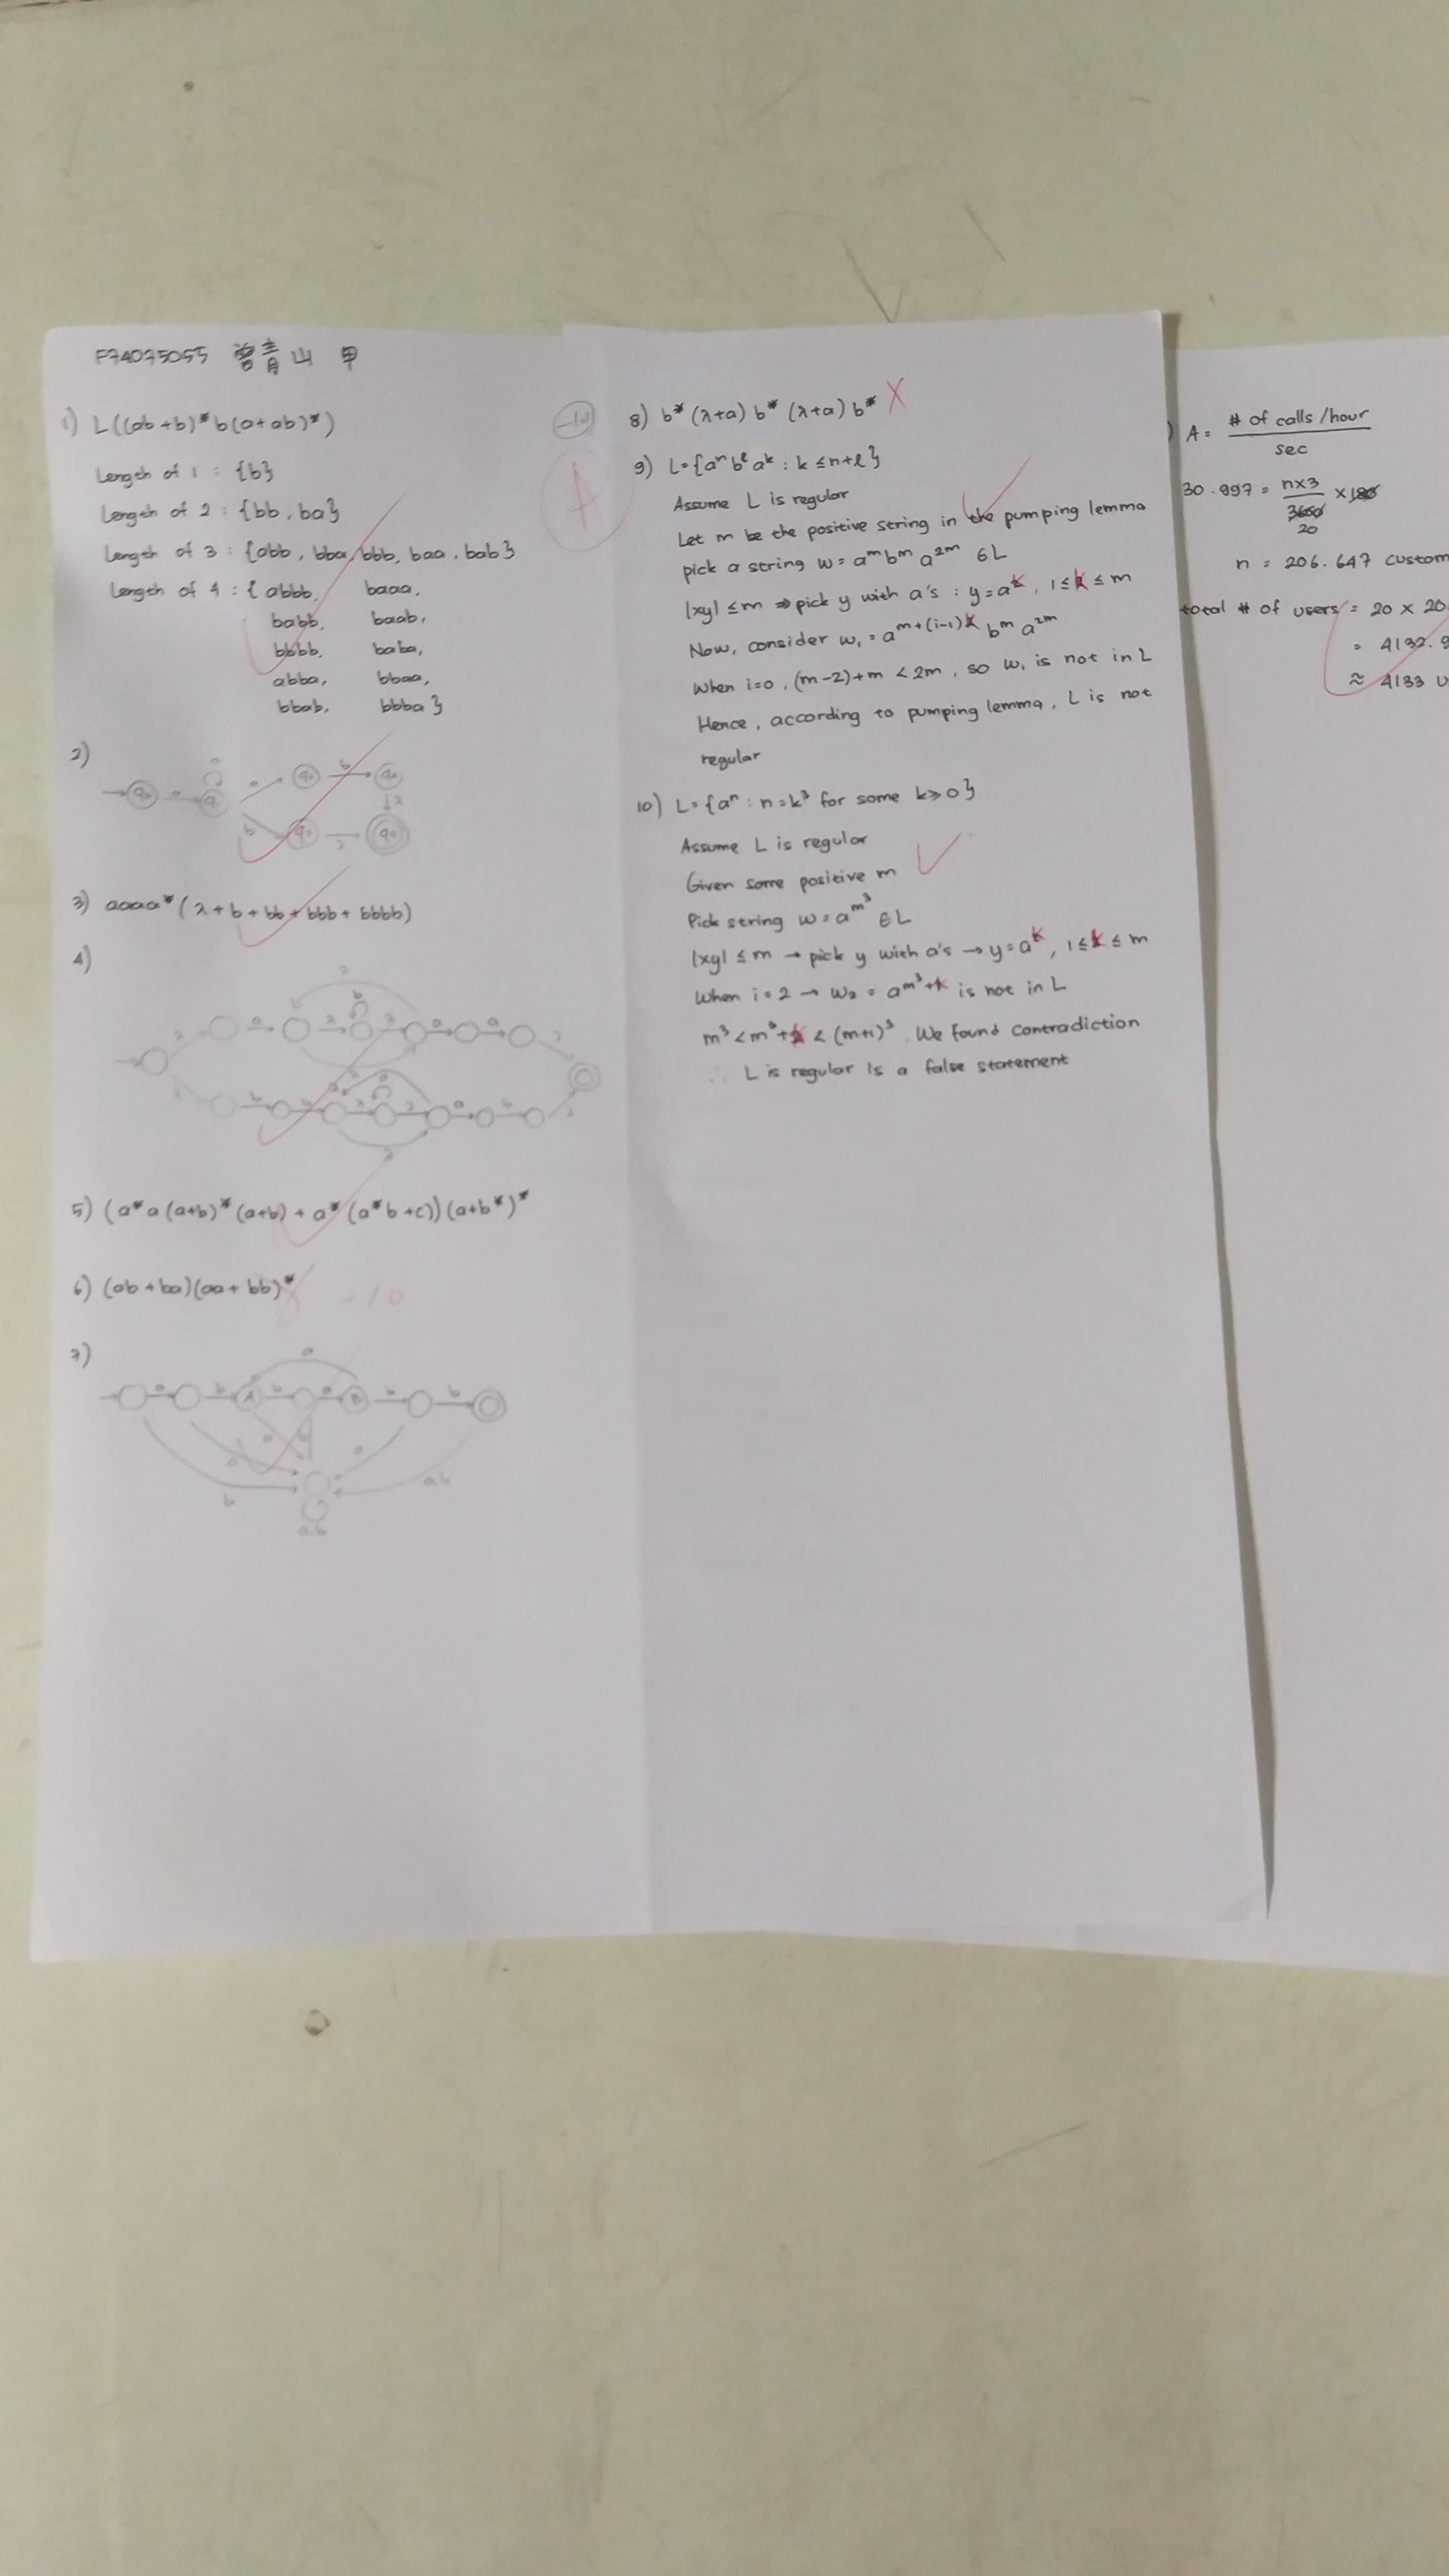 F74075055 曾青山 甲
1) L((ab+b)*b(a+ab)*)
Length of 1 : {b}
Length of 2 : {bb, ba}
Length of 3 : {abb, bba, bbb, baa, bab}
Length of 4 : { abbb, baaa,
babb, baab,
bbbb, baba,
abba, bbaa,
bbab, bbba }
2)
3) aaaa*(λ+b+bb+bbb+bbbb)
4)
5) (a*a(a+b)*(a+b)+a*(a*b+c))(a+b*)*
6) (ab+ba)(aa+bb)* -10
7)
a b A b a B b b
a
a b a
a b
b
a,b
-10
A
8) b*(λ+a)b*(λ+a)b* X
9) L={aⁿbˡaᵏ : k≤n+l}
Assume L is regular
Let m be the positive string in the pumping lemma
pick a string w = aᵐbᵐa²ᵐ ∈L
|xy| ≤m ⇒ pick y with a's : y=aᵏ, 1≤k≤m
Now, consider wᵢ = a^(m+(i-1)k) bᵐ a²ᵐ
When i=0, (m-2)+m < 2m, so wᵢ is not in L
Hence, according to pumping lemma, L is not
regular
10) L={aⁿ : n=k³ for some k≥0}
Assume L is regular
Given some positive m
Pick string w = a^m³ ∈L
|xy| ≤m → pick y with a's → y=aᵏ, 1≤k≤m
When i=2 → w₂ = a^(m³+k) is not in L
m³<m³+k<(m+1)³. We found contradiction
∴ L is regular is a false statement
) A = # of calls/hour / sec
30.997 = n×3 / 3600 × 180
20
n = 206.647 custom
total # of users = 20 × 20
= 4132.9
≈ 4133 u